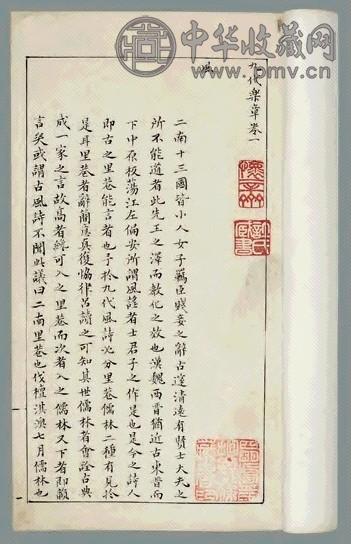 中华收藏网
九代樂章卷一
風
二南十三國皆小人女子羈臣賤妾之辭古邃清遠有賢士大夫之
所不能道者此先王之澤而教化之效也漢魏西晉猶近古東晉而
下中原板蕩江左偏安所謂風謠者士君子之作是也是今之詩人
即古之里巷能言者也予於九代風詩必分里巷儒林二種有見於
是耳里巷者辭簡意真復協律呂讀之可知其世儒林者會詮古典
成一家之言故高者可入之里巷而次者入之儒林又下者即
言矣或謂古風詩不聞此議曰二南里巷也伐檀淇澳七月儒林也